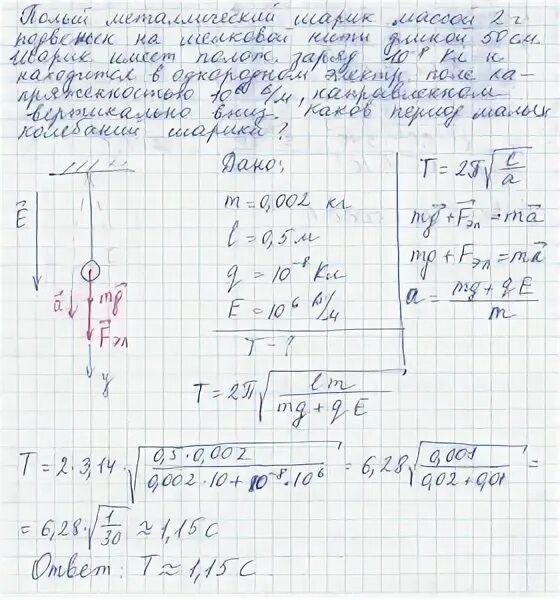 Полый металлический шарик массой 2 г
подвешен на шелковой нити длиной 50 см.
Шарик имеет полож. заряд 10⁻⁸ Кл и
находится в однородном электр. поле на-
пряженностью 10⁶ В/м, направленном
вертикально вниз. Каков период малых
колебаний шарика?
Дано:
m = 0,002 кг
l = 0,5 м
q = 10⁻⁸ Кл
E = 10⁶ В/м
T - ?
T = 2π√(l/a)
mg⃗ + F⃗эл = ma⃗
mg + Fэл = ma
a = (mg + qE)/m
E⃗
a⃗
mg⃗
F⃗эл
y
T = 2π√(lm/(mg + qE))
T = 2·3,14·√(0,5·0,002/(0,002·10 + 10⁻⁸·10⁶)) = 6,28√(0,001/(0,02+0,01)) =
= 6,28·√(1/30) ≈ 1,15 с
Ответ: T ≈ 1,15 с